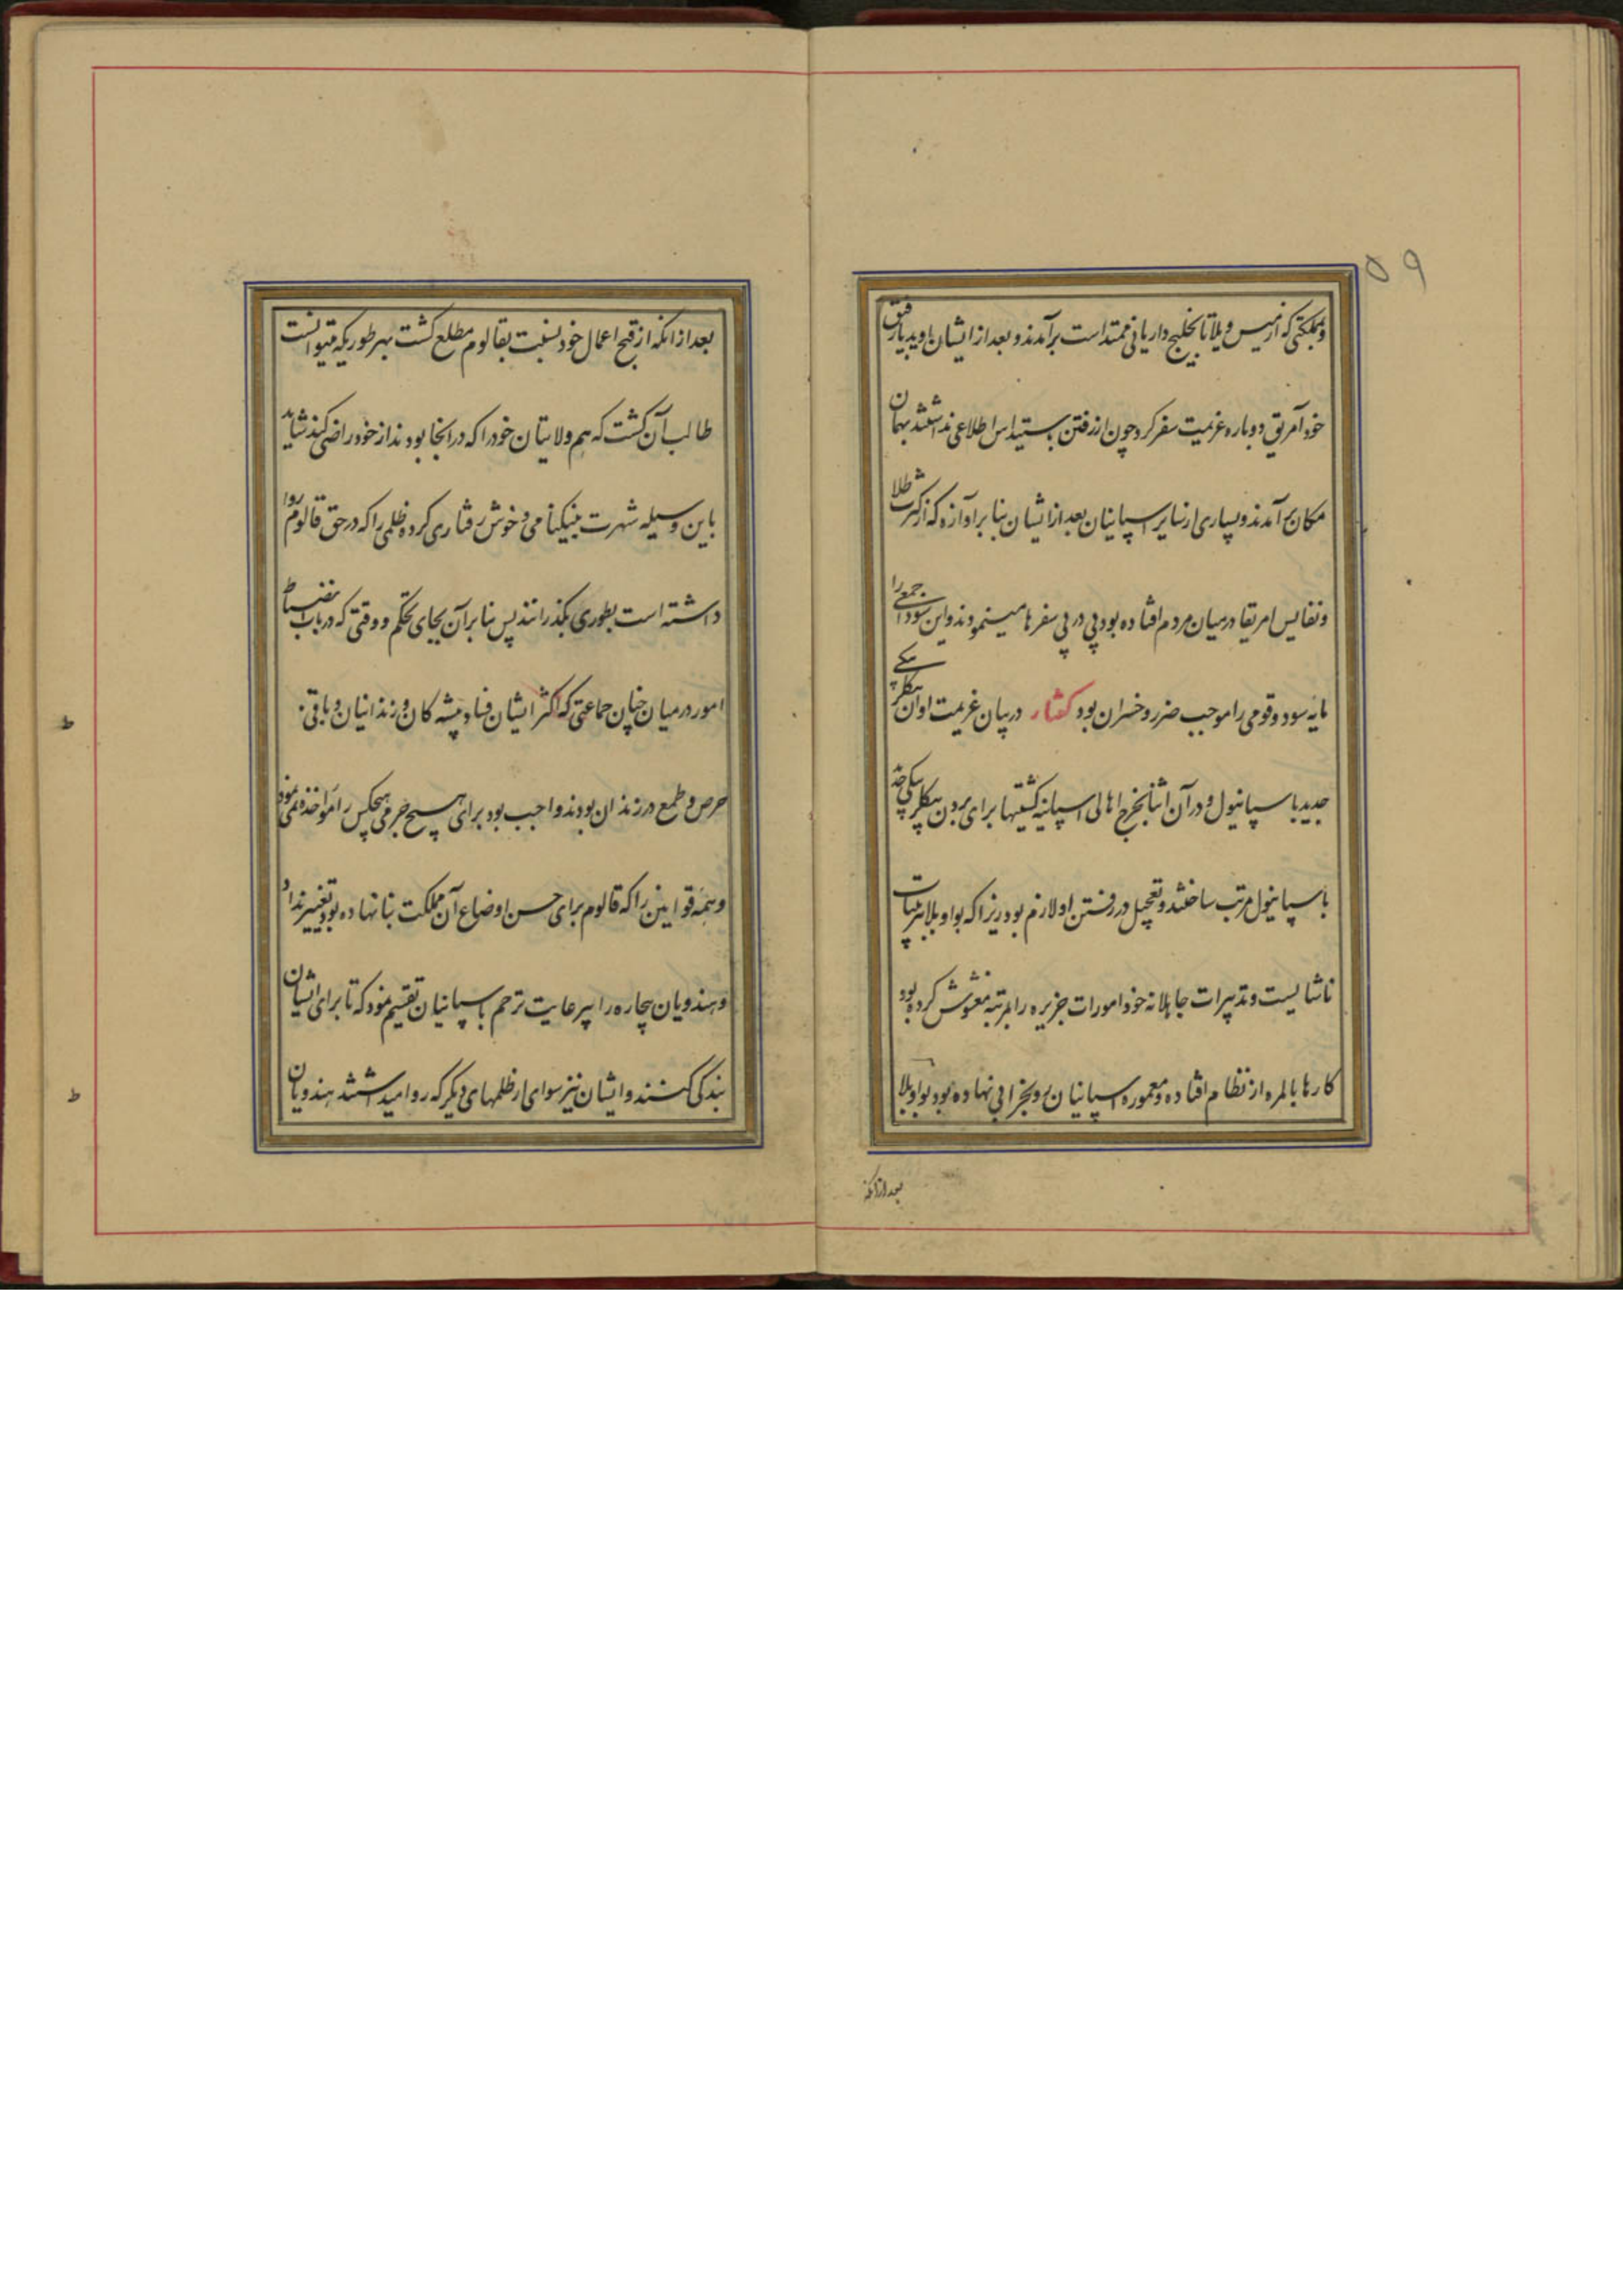 ۵۹
و بمملکتی که از میس ویلا تا بخلیج داریانی ممتد است برآمدند و بعد از ایشان اویدیا رفیق
خود آمریق دوباره عزیمت سفر کرد چون از رفتن بستیداس اطلاعی نداشتند بهمان
مکان برآمدند و بسیاری از سایر اسپانیان بعد از ایشان بنا بر آوازه که از کثرت طلا
و نفایس امریقا در میان مردم افتاده بود پی در پی سفرها مینمودند و این سودا جمعی را
مایه سود و قومی را موجب ضرر و خسران بود گفتار در بیان عزیمت اوان بیکلربیکی
جدید با سپانیول و در آن اثنا بخرج اهالی اسپانیه کشتیها برای بردن بیکلربیکی جدید
با سپانیول مرتب ساختند و تعجیل در رفتن او لازم بود زیرا که بواویلا بترتیبات
ناشایست و تدبیرات جاهلانه خود امورات جزیره را بمرتبه مغشوش کرده بود
کارها بالمره از نظام افتاده و معموره اسپانیان رو بخرابی نهاده بود بواویلا
بعد از انکه
بعد از انکه از قبح اعمال خود نسبت بقالوم مطلع کشت بهر طوریکه میتوانست
طالب آن کشت که هم ولایتان خود را که در انجا بودند از خود راضی کند شاید
باین وسیله شهرت بنیکنامی و خوش رفتاری کرده ظلمی را که در حق قالوم روا
داشته است بطوری بکذرانند پس بنابرآن بجای تحکم و وقتی که در باب انضباط
امور در میان چنان جماعتی که اکثر ایشان فساد پیشه کان و زندانیان و باقی
حرص و طمع در زندان بودند واجب بود برای هیچ جرمی هیچکس را مواخذه نمی نمود
و همه قوانین را که قالوم برای حسن اوضاع آن مملکت بنا نهاده بود تغییر نداد
و هندویان بیچاره را بی رعایت ترحم باسپانیان تقسیم نمود که تا برای ایشان
بندکی کنند و ایشان نیز سوای از ظلمهای دیکر که روا میداشتند هندویان